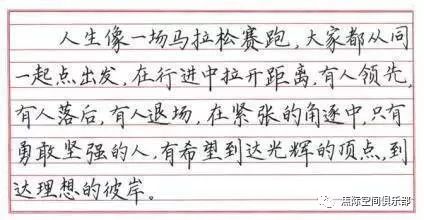 人生像一场马拉松赛跑,大家都从同
一起点出发,在行进中拉开距离.有人领先,
有人落后,有人退场,在紧张的角逐中,只有
勇敢坚强的人,有希望到达光辉的顶点,到
达理想的彼岸。
一惠际空间俱乐部